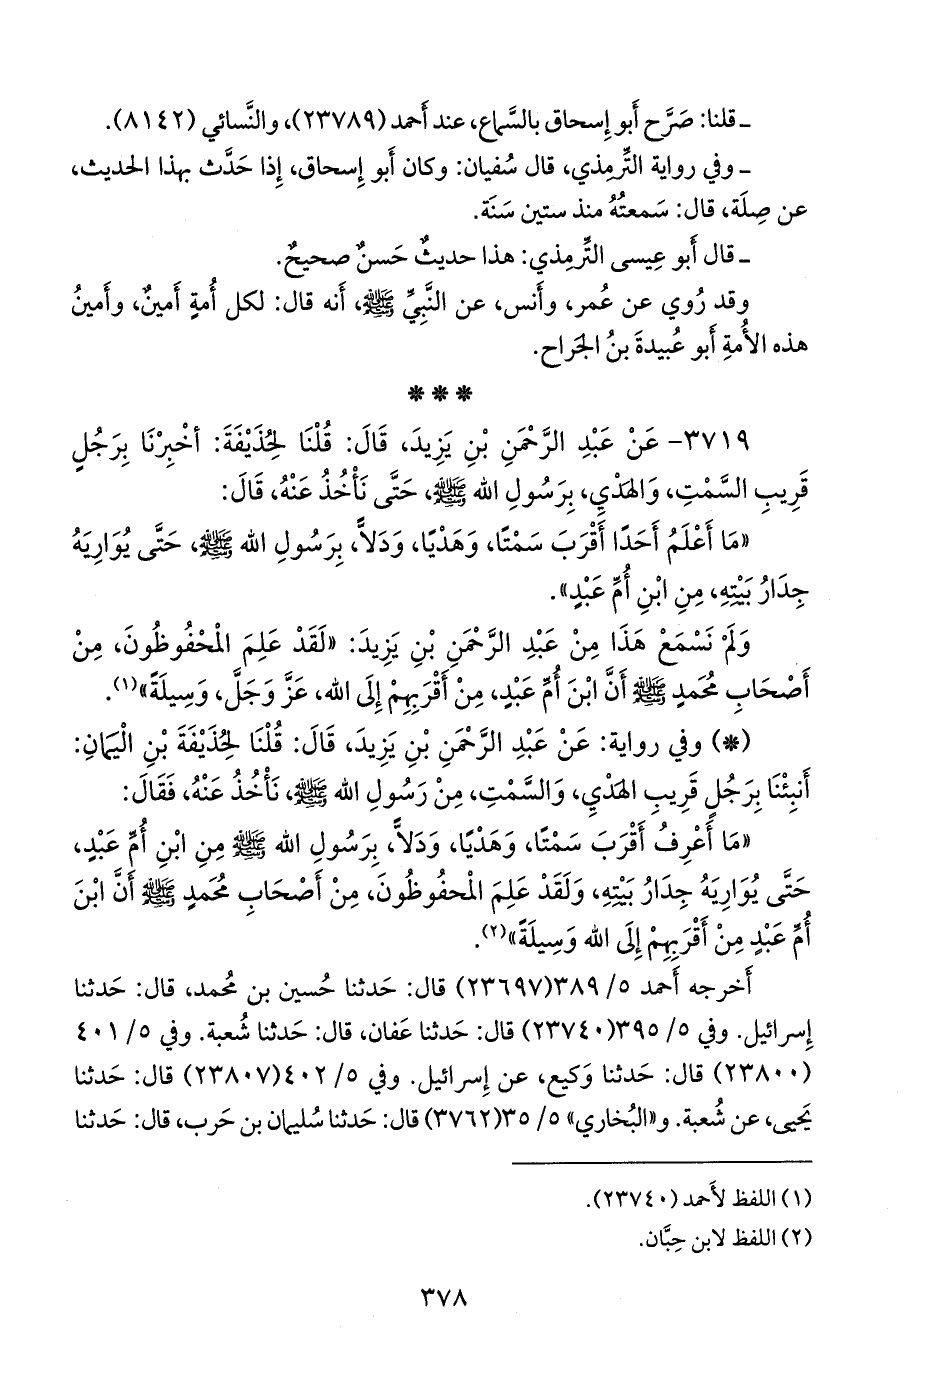 ـ قلنا: صَرَّح أَبو إِسحاق بالسَّماع، عند أَحمد (٢٣٧٨٩)، والنَّسائي (٨١٤٢).
ـ وفي رواية التِّرمِذي، قال سُفيان: وكان أَبو إِسحاق، إِذا حَدَّث بهذا الحديث،
عن صِلَة، قال: سَمعتُهُ منذ ستين سَنَة.
ـ قال أَبو عِيسى التِّرمِذي: هذا حديثٌ حَسنٌ صحيحٌ.
وقد رُوي عن عُمر، وأَنس، عن النَّبيِّ ﷺ، أَنه قال: لكل أُمةٍ أَمينٌ، وأَمينُ
هذه الأُمةِ أَبو عُبيدةَ بنُ الجَراح.
* * *
٣٧١٩- عَنْ عَبْدِ الرَّحْمَنِ بْنِ يَزِيدَ، قَالَ: قُلْنَا لِحُذَيْفَةَ: أخْبِرْنَا بِرَجُلٍ
قَرِيبِ السَّمْتِ، وَالهَدْيِ، بِرَسُولِ الله ﷺ، حَتَّى نَأْخُذُ عَنْهُ، قَالَ:
«مَا أَعْلَمُ أَحَدًا أَقْرَبَ سَمْتًا، وَهَدْيًا، وَدَلاًّ، بِرَسُولِ الله ﷺ، حَتَّى يُوَارِيَهُ
جِدَارُ بَيْتِهِ، مِنِ ابْنِ أُمِّ عَبْدٍ».
وَلَمْ نَسْمَعْ هَذَا مِنْ عَبْدِ الرَّحْمَنِ بْنِ يَزِيدَ: «لَقَدْ عَلِمَ الْمَحْفُوظُونَ، مِنْ
أَصْحَابِ مُحَمدٍ ﷺ أَنَّ ابْنَ أُمِّ عَبْدٍ، مِنْ أَقْرَبِهِمْ إِلَى الله، عَزَّ وَجَلَّ، وَسِيلَةً»(١).
(*) وفي رواية: عَنْ عَبْدِ الرَّحْمَنِ بْنِ يَزِيدَ، قَالَ: قُلْنَا لِحُذَيْفَةَ بْنِ الْيَمَانِ:
أَنبِئْنَا بِرَجُلٍ قَرِيبِ الهَدْيِ، وَالسَّمْتِ، مِنْ رَسُولِ الله ﷺ، نَأْخُذُ عَنْهُ، فَقَالَ:
«مَا أَعْرِفُ أَقْرَبَ سَمْتًا، وَهَدْيًا، وَدَلاًّ، بِرَسُولِ الله ﷺ مِنِ ابْنِ أُمِّ عَبْدٍ،
حَتَّى يُوَارِيَهُ جِدَارُ بَيْتِهِ، وَلَقَدْ عَلِمَ الْمَحفُوظُونَ، مِنْ أَصْحَابِ مُحَمدٍ ﷺ أَنَّ ابْنَ
أُمِّ عَبْدٍ مِنْ أَقْرَبِهِمْ إِلَى الله وَسِيلَةً»(٢).
أَخرجه أَحمد ٥/ ٣٨٩(٢٣٦٩٧) قال: حَدثنا حُسين بن مُحمد، قال: حَدثنا
إِسرائيل. وفي ٥/ ٣٩٥(٢٣٧٤٠) قال: حَدثنا عَفان، قال: حَدثنا شُعبة. وفي ٥/ ٤٠١
(٢٣٨٠٠) قال: حَدثنا وَكيع، عن إِسرائيل. وفي ٥/ ٤٠٢(٢٣٨٠٧) قال: حَدثنا
يَحيى، عن شُعبة. و«البُخاري» ٥/ ٣٥(٣٧٦٢) قال: حَدثنا سُليمان بن حَرب، قال: حَدثنا
(١) اللفظ لأَحمد (٢٣٧٤٠).
(٢) اللفظ لابن حِبَّان.
٣٧٨